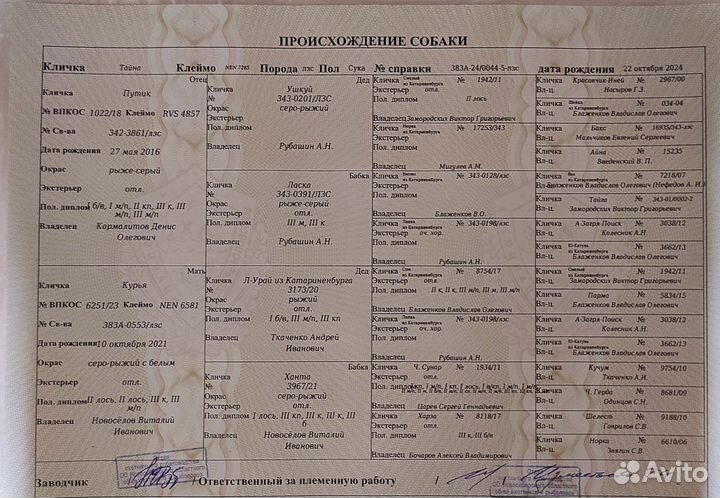 ПРОИСХОЖДЕНИЕ СОБАКИ
Кличка Тайна Клеймо NEN 7285 Порода лзс Пол Сука № справки 383А-24/0044-5-лзс дата рождения 22 октября 2024
Отец
Кличка Путик
№ ВПКОС 1022/18 Клеймо RVS 4857
№ Св-ва 342-3861/лзс
Дата рождения 27 мая 2016
Окрас рыже-серый
Экстерьер отл.
Пол. диплом I б/в, I м/п, II кп, III к, III м/п, III м/п
Владелец Кармалитов Денис
Олегович
Мать
Кличка Курья
№ ВПКОС 6251/23 Клеймо NEN 6581
№ Св-ва 383А-0553/лзс
Дата рождения 10 октября 2021
Окрас серо-рыжий с белым
Экстерьер отл.
Пол. диплом II лось, II лось, III к, III м/п
Владелец Новосёлов Виталий
Иванович
Дед
Кличка Ушкуй
№ 343-0201/ЛЗС
Окрас серо-рыжий
Экстерьер
Пол. диплом
Владелец Рубашин А.Н.
Бабка
Кличка Ласка
№ 343-0391/ЛЗС
Окрас рыже-серый
Экстерьер отл.
Пол. диплом III м, III к
Владелец Рубашин А.Н.
Дед
Кличка Л-Урай из Катариненбурга
№ 3173/20
Окрас рыжий
Экстерьер отл.
Пол. диплом I б/в, III м/п, III кп
Владелец Ткаченко Андрей
Иванович
Бабка
Кличка Ханта
№ 3967/21
Окрас серо-рыжий
Экстерьер отл.
Пол. диплом I лось, III к, III к, III
б
Владелец Новосёлов Виталий
Иванович
Кличка Смелый из Катариненбурга № 1942/11
Экстерьер отл.
Пол. диплом II лось
Владелец Замородских Виктор Григорьевич
Кличка № 17253/343
Экстерьер
Пол. диплом
Владелец Мигулев А.М.
Кличка из Катариненбурга № 343-0128/лзс
Экстерьер
Пол. диплом
Владелец Блаженков В.О.
Кличка из Катариненбурга № 343-0198/лзс
Экстерьер оч. хор.
Пол. диплом
Владелец Рубашин А.Н.
Кличка из Катариненбурга № 8754/17
Экстерьер отл.
Пол. диплом II к, II к, III м/п, III м, III м/п
Владелец
Кличка из Катариненбурга № 343-0198/лзс
Экстерьер оч. хор.
Пол. диплом
Владелец Рубашин А.Н.
Кличка Ч. Сунар № 1934/11
Экстерьер отл.
Пол. диплом
Владелец Царев Сергей Геннадьевич
Кличка Харза № 8118/17
Экстерьер отл.
Пол. диплом III к, III б/в
Владелец Бочаров Алексей Владимирович
Кличка Красавчик-Иней № 2967/00
Вл-ц. Насыров Г.З.
Кличка из Катариненбурга № 034-04
Вл-ц. Блаженков Владислав Олегович
Кличка Бакс № 16935/343-лзс
Вл-ц. Мальчиков Евгений Сергеевич
Кличка Айна № 15235
Вл-ц. Введенский В. П.
Кличка из Катариненбурга № 7218/07
Вл-ц. Блаженков Владислав Олегович (Нефедов А. И.)
Кличка Тайга № 343-01/0002-2
Вл-ц. Замородских Виктор Григорьевич
Кличка А-Загря-Поиск № 3038/12
Вл-ц. Колесник А.Н.
Кличка Ю-Катунь из Катариненбурга № 3662/13
Вл-ц. Блаженков Владислав Олегович
Кличка Смелый из Катариненбурга № 1942/11
Вл-ц. Замородских Виктор Григорьевич
Кличка Парма № 5834/15
Вл-ц. Блаженков Владислав Олегович
Кличка А-Загря-Поиск № 3038/12
Вл-ц. Колесник А.Н.
Кличка Ю-Катунь из Катариненбурга № 3662/13
Вл-ц. Блаженков Владислав Олегович
Кличка Кучум № 9754/10
Вл-ц. Ткаченко А.И.
Кличка Ч. Герда № 8681/09
Вл-ц. Одинцов С.Н.
Кличка Шелест № 9188/10
Вл-ц. Гаврилов С.В.
Кличка Норка № 6610/06
Вл-ц. Звягин С.В.
Заводчик / Ответственный за племенную работу / /
Avito